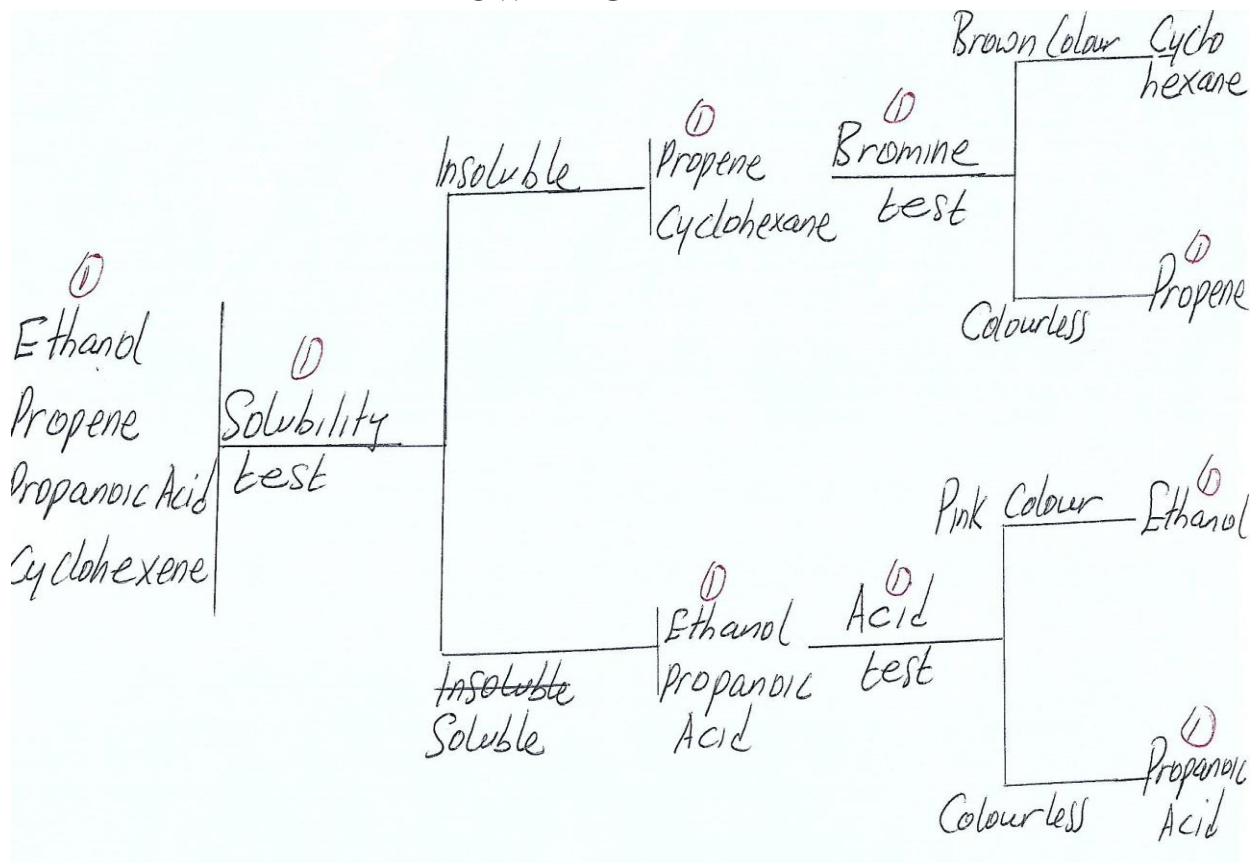 ①
Ethanol
Propene
Propanoic Acid
Cyclohexene
①
Solubility
test
Insoluble
①
Propene
Cyclohexane
①
Bromine
test
Brown Colour
Cyclo
hexane
Colourless
①
Propene
Insoluble
Soluble
①
Ethanol
Propanoic
Acid
①
Acid
test
Pink Colour
①
Ethanol
Colourless
①
Propanoic
Acid